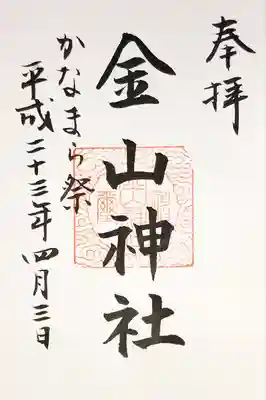 奉拝
金山神社
かなまら祭
平成二十三年四月三日